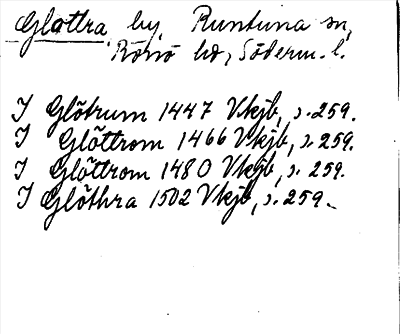 Glottra, by, Runtuna sn,
Rönö hd, Söderm. l.
I Glötrum 1447 Vkjb, s. 259.
I Glöttrom 1466 Vkjb, s. 259.
I Glöttrom 1480 Vkjb, s. 259.
I Glöthra 1502 Vkjb, s. 259.